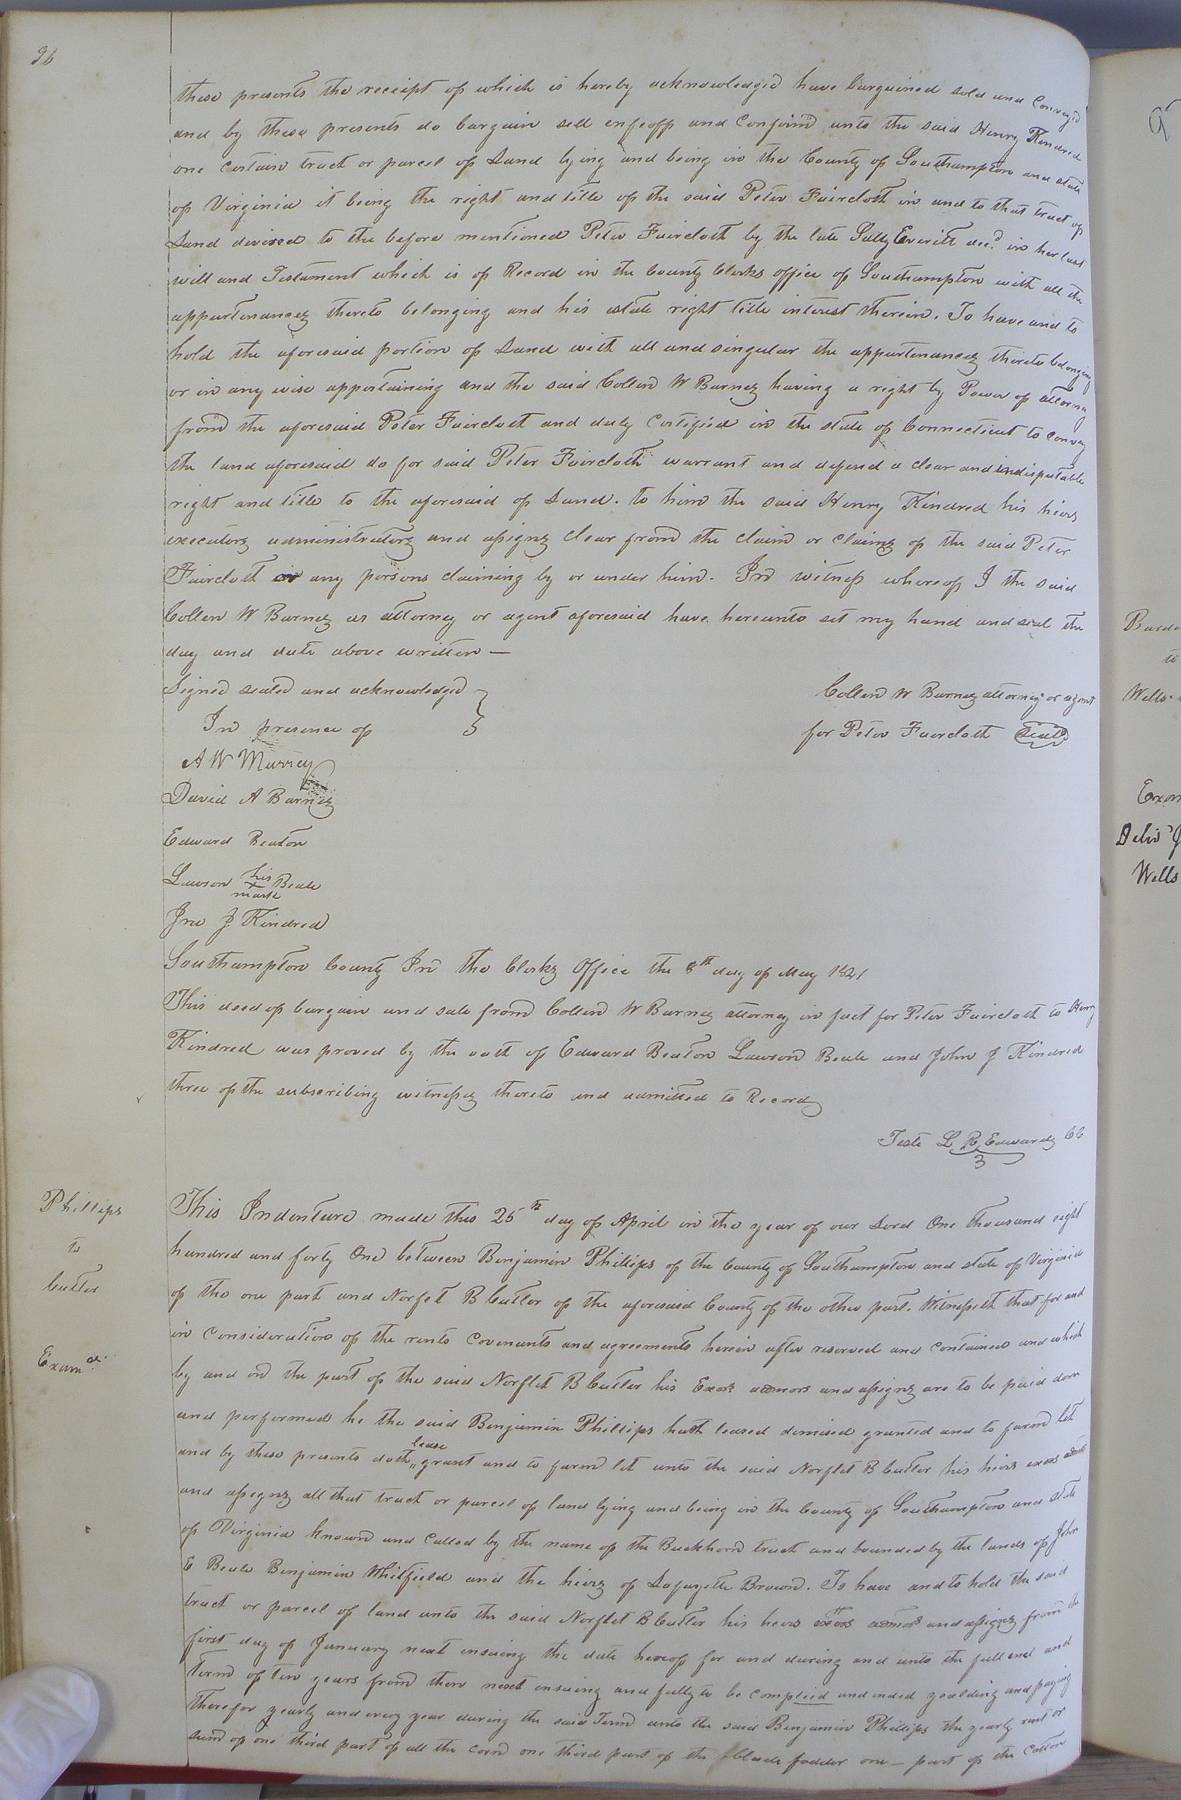 96
these presents the receipt of which is hereby acknowledged have bargained sold and conveyd
and by these presents do bargain sell enfeoff and confirm unto the said Henry Kindred
one certain tract or parcel of Land lying and being in the County of Southampton and state
of Virginia it being the right and title of the said Peter Faircloth in and to that tract of
Land devised to the before mentioned Peter Faircloth by the late Sally Everitt decd in her last
will and Testament which is of Record in the County Clerks office of Southampton with all the
appurtenances thereto belonging and his estate right title interest therein. To have and to
hold the aforesaid portion of Land with all and singular the appurtenances thereto belonging
or in any wise appertaining and the said Collen W Barnes having a right by Power of attorney
from the aforesaid Peter Faircloth and duly Certified in the state of Connecticut to convey
the land aforesaid do for said Peter Faircloth warrant and defend a clear and indisputable
right and title to the aforesaid of Land. to him the said Henry Kindred his heirs
executors administrators and assigns clear from the claim or claims of the said Peter
Faircloth or any persons claiming by or under him. In witness whereof I the said
Collen W Barnes as attorney or agent aforesaid have hereunto set my hand and seal the
day and date above written —
Signed sealed and acknowledged
In presence of
Collen W Barnes attorney or agent
for Peter Faircloth Seal
A W Murrey
David A Barnes
Edward Beaton
Lawson his mark Beale
Jno J Kindred
Southampton County In the Clerks Office the 8th day of May 1841
This deed of bargain and sale from Collen W Barnes attorney in fact for Peter Faircloth to Henry
Kindred was proved by the oath of Edward Beaton Lawson Beale and John J Kindred
three of the subscribing witnesses thereto and admitted to Record
Teste L R Edwards CC
Phillips
to
Cutler
Examd
This Indenture made this 25th day of April in the year of our Lord One thousand eight
hundred and forty One between Benjamin Phillips of the County of Southampton and state of Virginia
of the one part and Norflet B Cutler of the aforesaid County of the other part. Witnesseth that for and
in consideration of the rents covenants and agreements herein after reserved and contained and which
by and on the part of the said Norflet B Cutler his Exors admors and assigns are to be paid done
and performed he the said Benjamin Phillips hath leased demised granted and to farm let
and by these presents doth lease grant and to farm let unto the said Norflet B Cutler his heirs exors admors
and assigns all that tract or parcel of land lying and being in the County of Southampton and state
of Virginia known and called by the name of the Buckhorn tract and bounded by the lands of John
E Beale Benjamin Whitfield and the heirs of Lafayette Brown. To have and to hold the said
tract or parcel of land unto the said Norflet B Cutler his heirs exors admors and assigns from the
first day of January next ensuing the date hereof for and during and unto the full end and
Term of ten years from then next ensuing and fully to be complied and ended yealding and paying
therefor yearly and every year during the said Term unto the said Benjamin Phillips the yearly rent or
sum of one third part of all the corn one third part of the blade fodder one — part of the Cotton
Wells
Wells